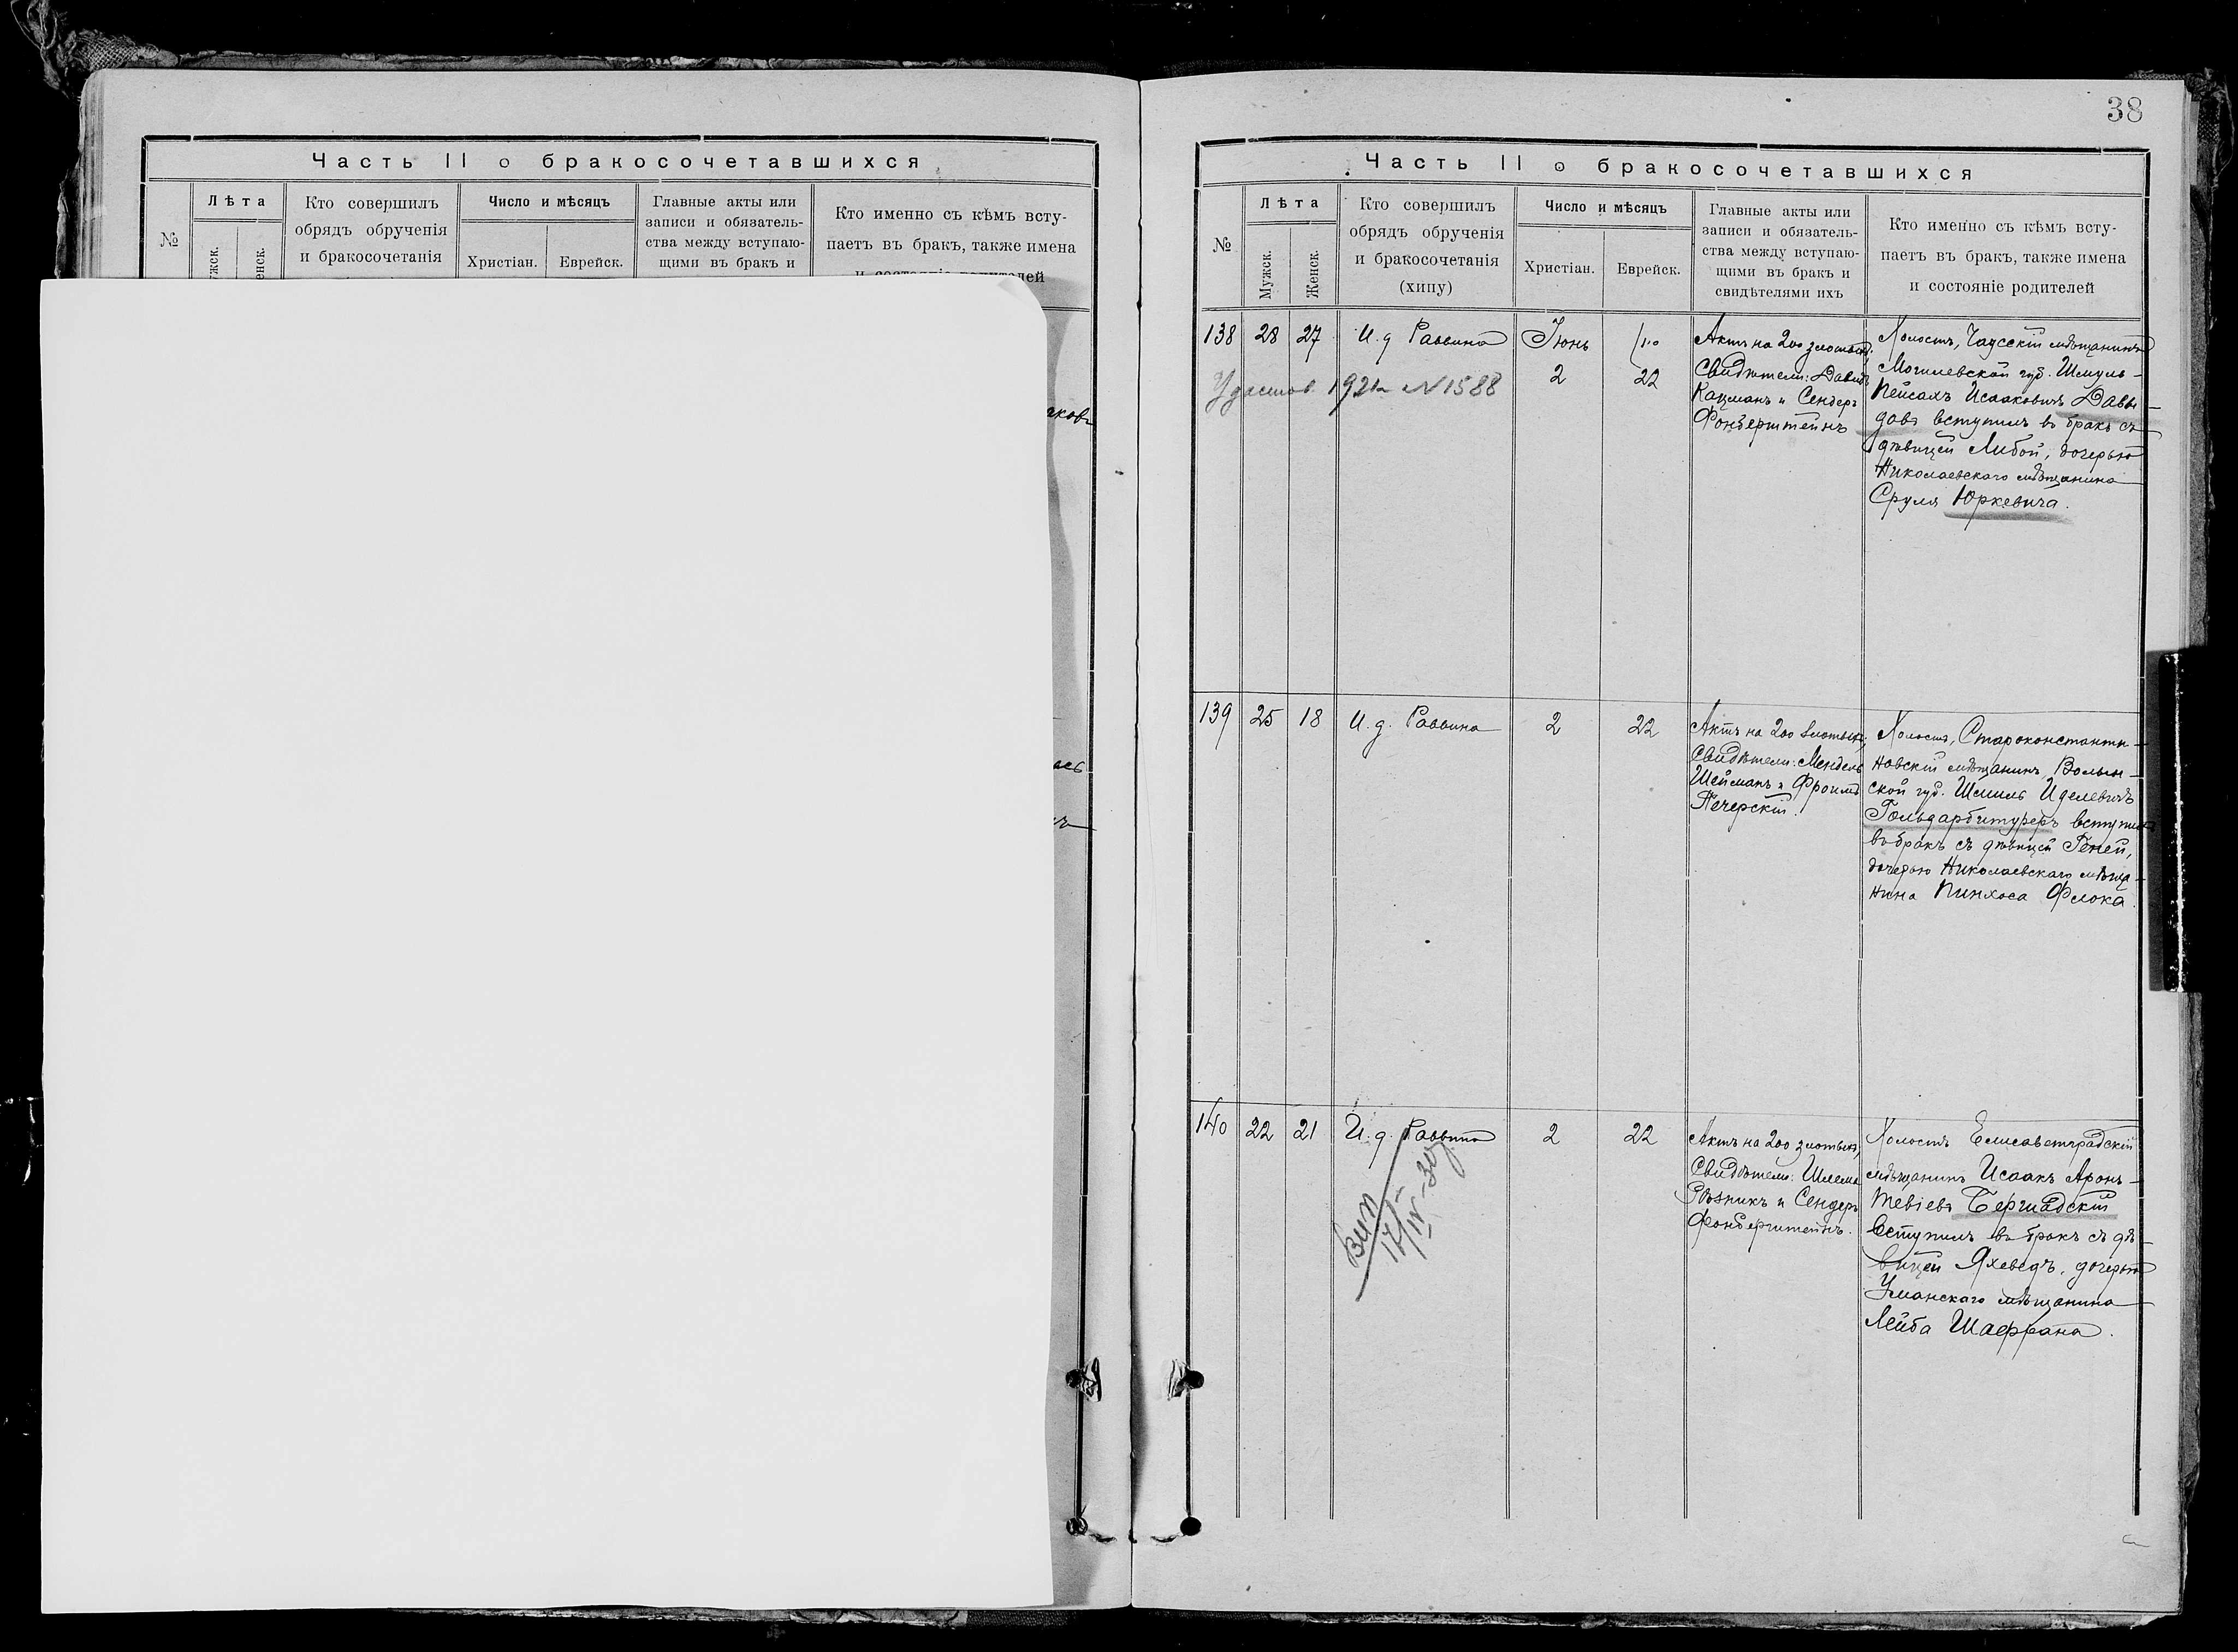 Часть II о бракосочетавшихся
№
Лѣта
Кто совершилъ
обрядъ обрученія
и бракосочетанія
Число и мѣсяцъ
Христіан.
Еврейск.
Главные акты или
записи и обязатель-
ства между вступаю-
щими въ бракъ и
Кто именно съ кѣмъ всту-
паетъ въ бракъ, также имена
38
Часть II о бракосочетавшихся
№
Лѣта
Мужск.
Женск.
Кто совершилъ
обрядъ обрученія
и бракосочетанія
(хипу)
Число и мѣсяцъ
Христіан.
Еврейск.
Главные акты или
записи и обязатель-
ства между вступаю-
щими въ бракъ и
свидѣтелями ихъ
Кто именно съ кѣмъ всту-
паетъ въ бракъ, также имена
и состояніе родителей
138
28
27
И. д Раввина
Іюнь
2
22
Удостов. 1921 г N 1588
Актъ на 200 злотыхъ.
Свидѣтели: Давидъ
Кацманъ и Сендеръ
Фонберштейнъ
Холостъ, Чаусскій мѣщанинъ
Могилевской губ. Шмуль-
Пейсахъ Исааковичъ Давы-
довъ вступилъ въ бракъ съ
дѣвицей Либой, дочерью
Николаевскаго мѣщанина
Сруля Юркевича.
139
25
18
И. д. Раввина
2
22
Актъ на 200 злотыхъ,
Свидѣтели: Мендель
Шейманъ и Фроимъ
Печерскій.
Холостъ, Староконстанти-
новскій мѣщанинъ, Волын-
ской губ. Шмиль Иделевичъ
Гольдарбитуреръ вступилъ
въ бракъ съ дѣвицей Геней,
дочерью Николаевскаго мѣща-
нина Пинхоса Флока.
140
22
21
И. д. Раввина
2
22
Актъ на 200 злотыхъ,
Свидѣтели: Шлема
Рѣзникъ и Сендеръ
Фонберштейнъ.
Холостъ Елисаветградскій
мѣщанинъ Исаакъ Аронъ-
Тевіевъ Бершадскій
вступилъ въ бракъ съ дѣ-
вицей Яхеведъ, дочерью
Уманскаго мѣщанина
Лейба Шаффана.